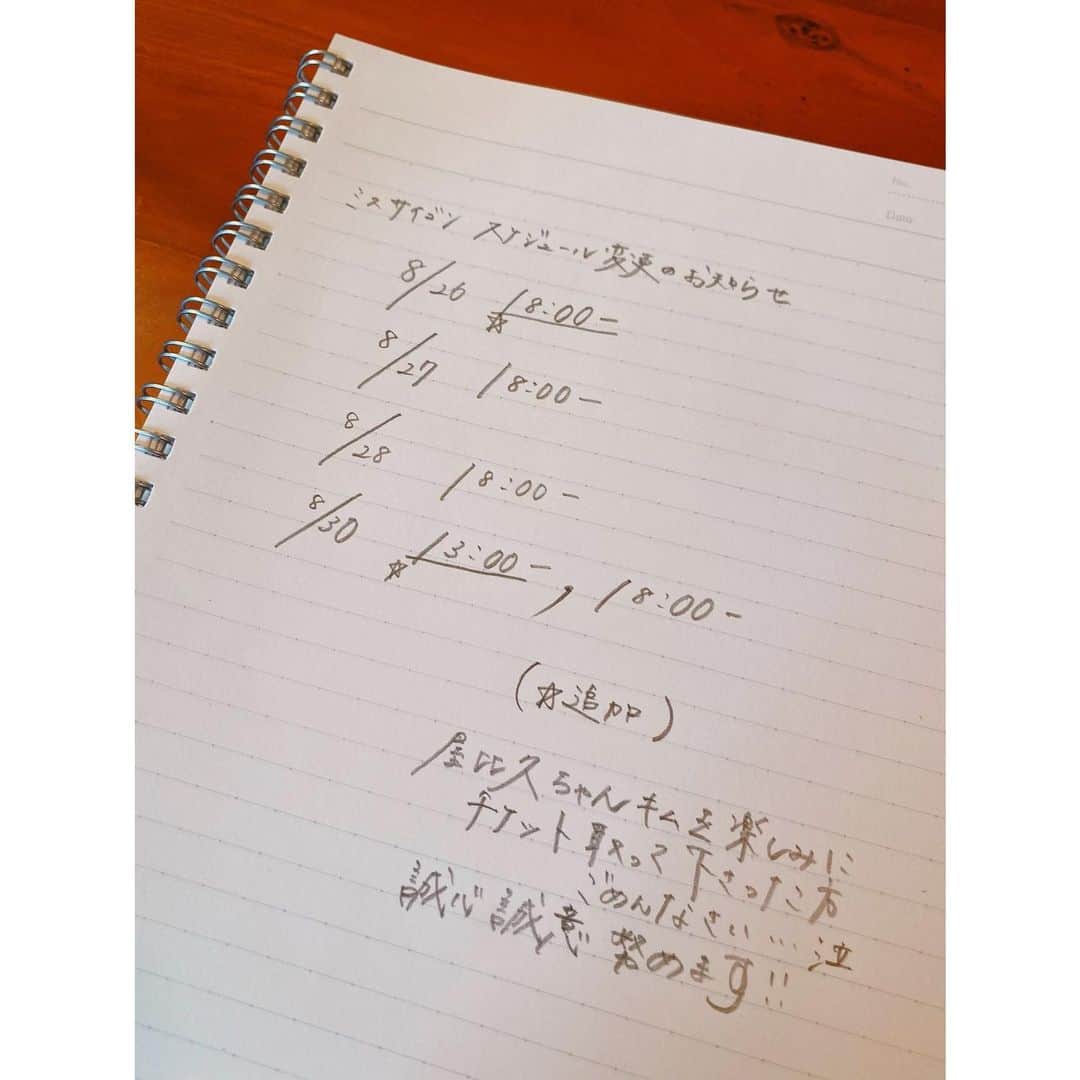 No.
Date
ミスサイゴン スケジュール変更のお知らせ
8/26 ☆18:00-
8/27 18:00-
8/28 18:00-
8/30 ☆13:00-, 18:00-
(☆追加)
屋比久ちゃんキムを楽しみに
チケット取って下さった方
ごめんなさい…泣
誠心誠意努めます!!